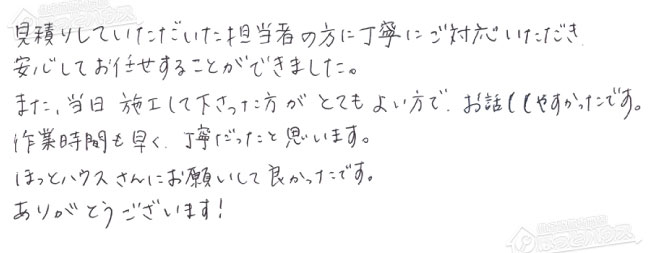 見積りしていただいた担当者の方に丁寧にご対応いただき
安心してお任せすることができました。
また、当日 施工して下さった方が とても よい方で、お話ししやすかったです。
作業時間も早く、丁寧だったと思います。
ほっとハウスさんにお願いして良かったです。
ありがとうございます!
ほっとハウス
ほっとハウス